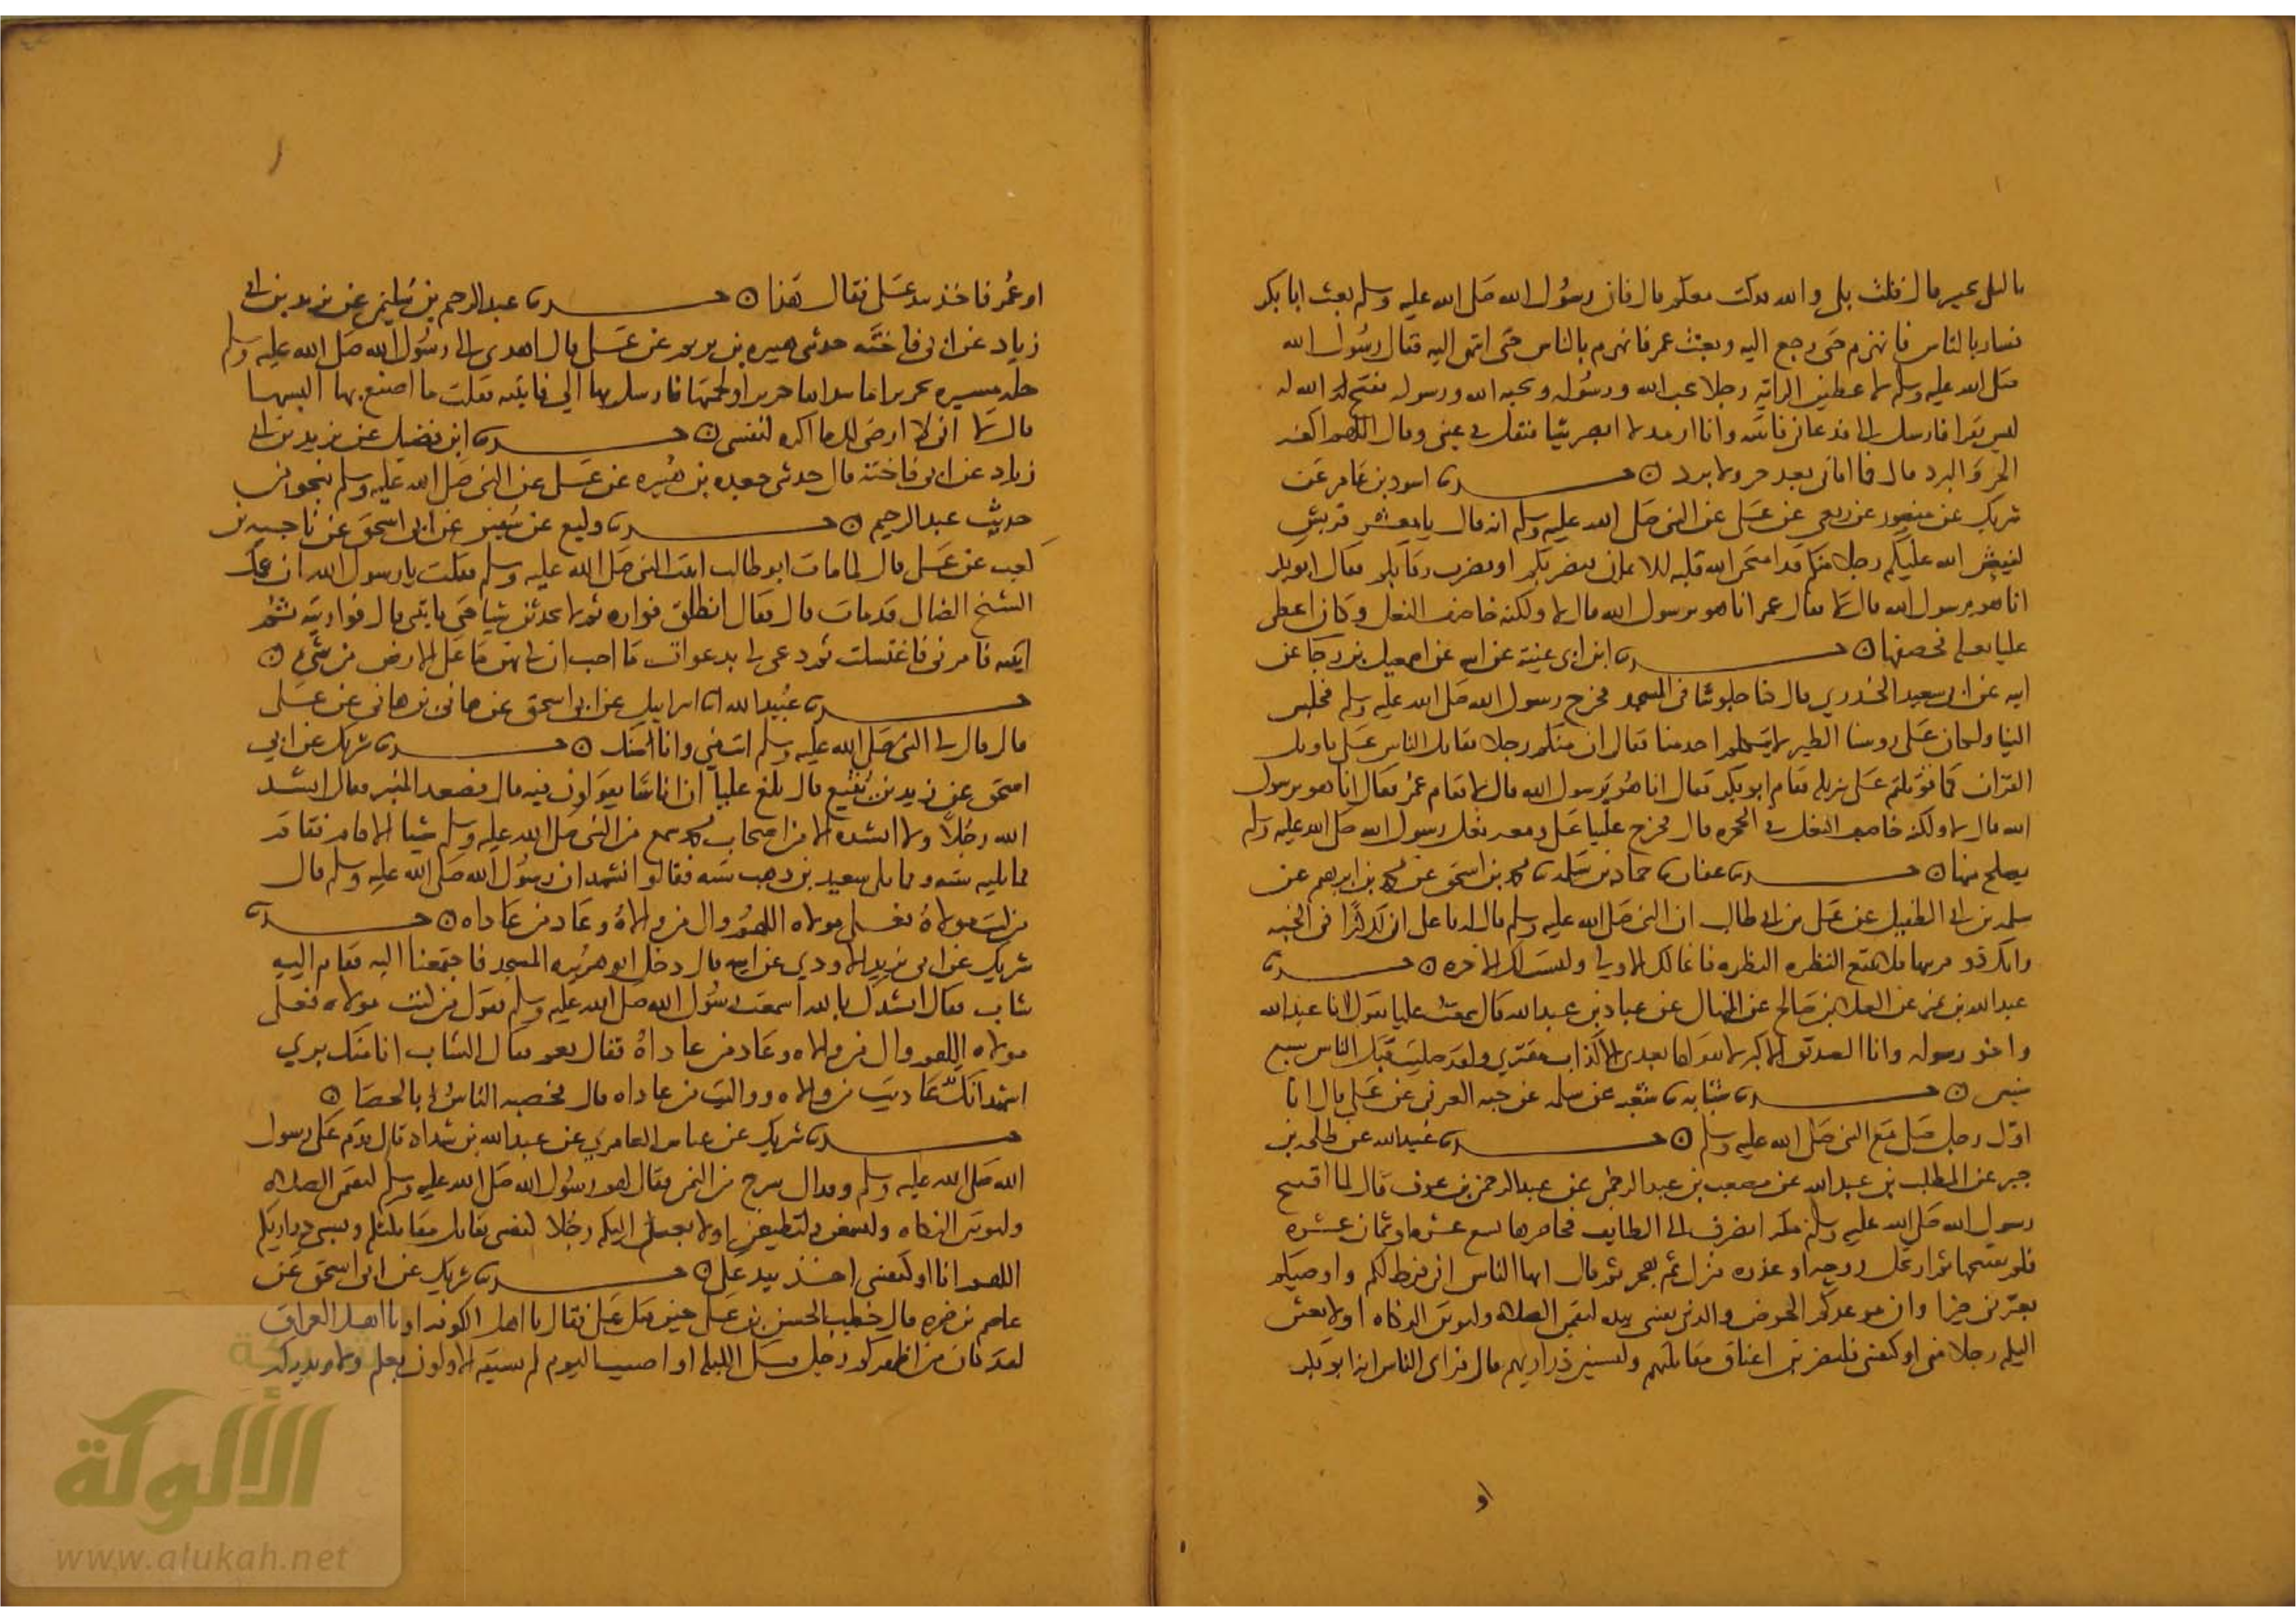 ياليلى بخيبر قال قلت بلى والله لقد كنت معكم قال فان رسول الله صلى الله عليه وسلم بعث ابا بكر
فسار بالناس فانهزم حتى رجع اليه وبعث عمر فانهزم بالناس حتى انتهى اليه فقال رسول الله
صلى الله عليه وسلم لاعطين الراية رجلا يحب الله ورسوله ويحبه الله ورسوله يفتح الله له
ليس بفرار فارسل الي فدعاني فاتيته وانا ارمد لا ابصر شيا فتفل في عيني وقال اللهم اكفه
الحر والبرد قال فما اذاني بعد حر ولا برد ن حدثنا اسود بن عامر عن
شريك عن منصور عن ربعي عن علي عن النبي صلى الله عليه وسلم انه قال يا معشر قريش
ليبعثن الله عليكم رجلا منكم قد امتحن الله قلبه للايمان فيضربكم او يضرب رقابكم فقال ابو بكر
انا هو يرسول الله قال لا فقال عمر انا هو يرسول الله قال لا ولكنه خاصف النعل وكان اعطى
عليا نعله يخصفها ن حدثنا ابن ابي غنية عن ابيه عن اسمعيل بن رجا عن
ابيه عن ابي سعيد الخدري قال كنا جلوسا في المسجد فخرج رسول الله صلى الله عليه وسلم فجلس
الينا ولكان على روسنا الطير لا يتكلم احد منا فقال ان منكم رجلا يقاتل الناس على تاويل
القران كما قوتلتم على تنزيله فقام ابو بكر فقال انا هو يرسول الله قال لا فقام عمر فقال انا هو يرسول
الله قال لا ولكنه خاصف النعل في الحجره قال فخرج علينا علي ومعه نعل رسول الله صلى الله عليه وسلم
يصلح منها ن حدثنا عفان نا حماد بن سلمه نا محمد بن اسحق عن محمد بن ابرهيم عن
سلمه بن ابي الطفيل عن علي بن ابي طالب ان النبي صلى الله عليه وسلم قال له يا علي ان لك كنزا في الجنه
وانك ذو قرنيها فلا تتبع النظره النظره فانما لك الاولى وليست لك الاخره ن حدثنا
عبدالله بن نمير عن العلا بن صالح عن المنهال عن عباد بن عبدالله قال سمعت عليا يقول انا عبدالله
واخو رسوله وانا الصديق الاكبر لا يقولها بعدي الا كذاب مفتري ولقد صليت قبل الناس سبع
سنين ن حدثنا شبابه نا شعبه عن سلمه عن حبه العرني عن علي قال انا
اول رجل صلى مع النبي صلى الله عليه وسلم ن حدثنا عبيدالله عن طلحه بن
جبر عن المطلب بن عبدالله عن مصعب بن عبدالرحمن عن عبدالرحمن بن عوف قال لما افتتح
رسول الله صلى الله عليه وسلم مكه انصرف الى الطايف فحاصرها سبع عشره او ثمان عشره
فلم يفتحها ثم ارتحل روحه او غدوه فنزل ثم هجر ثم قال ايها الناس اني فرط لكم واوصيكم
بعترتي خيرا وان موعدكم الحوض والذي نفسي بيده ليقيمن الصلاه وليوتن الزكاه او لابعثن
اليكم رجلا مني او كنفسي فليضربن اعناق مقاتلتهم وليسبين ذراريهم قال فراى الناس انه ابو بكر
او
او عمر فاخذ بيد علي فقال هذا ن حدثنا عبدالرحيم بن سليمن عن يزيد بن ابي
زياد عن ابي فاخته حدثني هبيره بن يريم عن علي قال اهدي الى رسول الله صلى الله عليه وسلم
حله مسيره بحرير اما سداها حريرا او لحمتها فارسل بها الي فاتيته فقلت ما اصنع بها البسها
قال لا اني لا ارضى لك ما اكره لنفسي ن حدثنا ابن فضيل عن يزيد بن ابي
زياد عن ابي فاخته قال حدثني جعده بن هبيره عن علي عن النبي صلى الله عليه وسلم بنحو من
حديث عبدالرحيم ن حدثنا وكيع عن سفين عن ابي اسحق عن ناجيه بن
كعب عن علي قال لما مات ابو طالب اتيت النبي صلى الله عليه وسلم فقلت يا رسول الله ان عمك
الشيخ الضال قد مات قال فقال انطلق فواره ثم لا تحدثن شيا حتى تاتيني قال فواريته ثم
اتيته فامرني فاغتسلت ثم دعى لي بدعوات ما احب ان لي بهن ما على الارض من شي ن
حدثنا عبيدالله انا اسراييل عن ابي اسحق عن هاني بن هاني عن علي
قال قال لي النبي صلى الله عليه وسلم انت مني وانا منك ن حدثنا شريك عن ابي
اسحق عن زيد بن يثيع قال بلغ عليا ان اناسا يقولون فيه قال فصعد المنبر فقال انشد
الله رجلا ولا انشده الا من اصحاب محمد سمع من النبي صلى الله عليه وسلم شيا الا قام فقام
مما يليه سته ومما يلي سعيد بن وهب سته فقالوا نشهد ان رسول الله صلى الله عليه وسلم قال
من كنت مولاه فعلي مولاه اللهم وال من والاه وعاد من عاداه ن حدثنا
شريك عن ابي يزيد الاودي عن ابيه قال دخل ابو هريره المسجد فاجتمعنا اليه فقام اليه
شاب فقال انشدك بالله اسمعت رسول الله صلى الله عليه وسلم يقول من كنت مولاه فعلي
مولاه اللهم وال من والاه وعاد من عاداه فقال نعم فقال الشاب انا منك بري
اشهد انك عاديت من والاه وواليت من عاداه قال فحصبه الناس بالحصا ن
حدثنا شريك عن عياش العامري عن عبدالله بن شداد قال قدم على رسول
الله صلى الله عليه وسلم وفد ال سرح من اليمن فقال لهم رسول الله صلى الله عليه وسلم لتقيمن الصلاه
ولتوتن الزكاه ولتسمعن ولتطيعن او لابعثن اليكم رجلا كنفسي يقاتل مقاتلتكم ويسبي ذراريكم
اللهم انا او كنفسي اخذ بيد علي ن حدثنا شريك عن ابي اسحق عن
عاصم بن ضمره قال خطب الحسن بن علي حين قتل علي فقال يا اهل الكوفه او يا اهل العراق
لقد كان بين اظهركم رجل قتل الليله او اصيب اليوم لم يسبقه الاولون بعلم ولا يدركه
شبكة
الألوكة
www.alukah.net